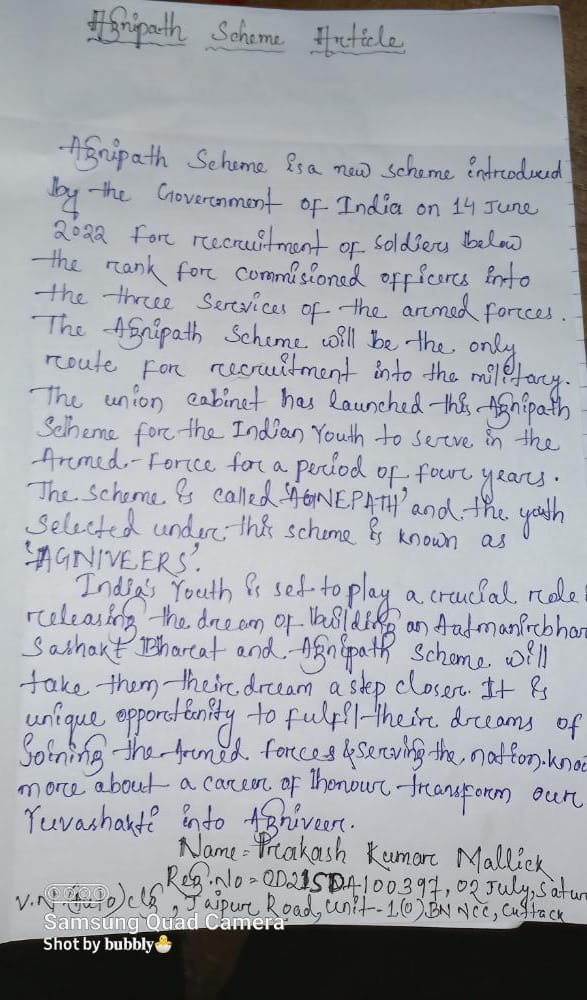 Agnipath Scheme Article
Agnipath Scheme is a new scheme introduced
by the Government of India on 14 June
2022 for recruitment of soldiers below
the rank for commisioned officers into
the three Services of the armed forces.
The Agnipath Scheme will be the only
route for recruitment into the military.
The union cabinet has launched this Agnipath
Scheme for the Indian Youth to serve in the
Armed-Force for a period of four years.
The scheme is called 'AGNEPATH' and the youth
selected under this scheme is known as
'AGNIVEERS'.
India's Youth is set to play a crucial role
releasing the dream of building an Aatmanirbhar
Sashakt Bharat and Agnipath Scheme will
take them their dream a step closer. It is
unique opportinity to fulfil their dreams of
Joining the Armed forces & serving the nation. know
more about a career of honour transform our
Yuvashakti into Agniveer.
Name = Prakash Kumar Mallick
Reg. No = OD21SDA100397, 02 July, Satur
V.N (Auto) clg, Jaipur Road, Unit-1(O) BN NCC, Cuttack
Samsung Quad Camera
Shot by bubbly🐣